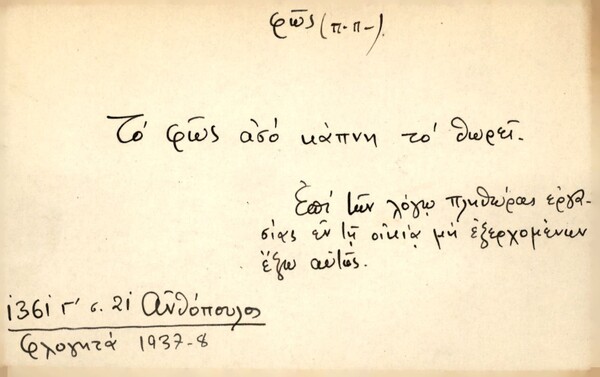 φῶς (π-π-).
Τό φῶς ἀσό κάπνη τό θωρεῖ.
Ἐπί τῶν λόγῳ πληθώρας ἐργα-
σίας ἐν τῇ οἰκίᾳ μή ἐξερχομένων
ἔξω αὐτῆς.
1361 Γ' σ. 21 Ἀνθόπουλος
Φλογητά 1937-8